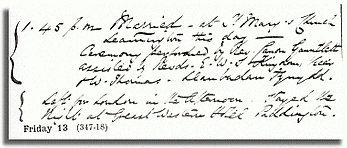 1.45 p.m Married - at St Mary's Church
Leamington this day -
Ceremony performed by Rev. Canon
assisted by Revds. E. W. S. Kingdon,
& W. Thomas - Llanbadarn Fynydd.
Left for London in the Afternoon. Stayed the
Night at Great Western Hotel Paddington.
Friday 13 (347-18)